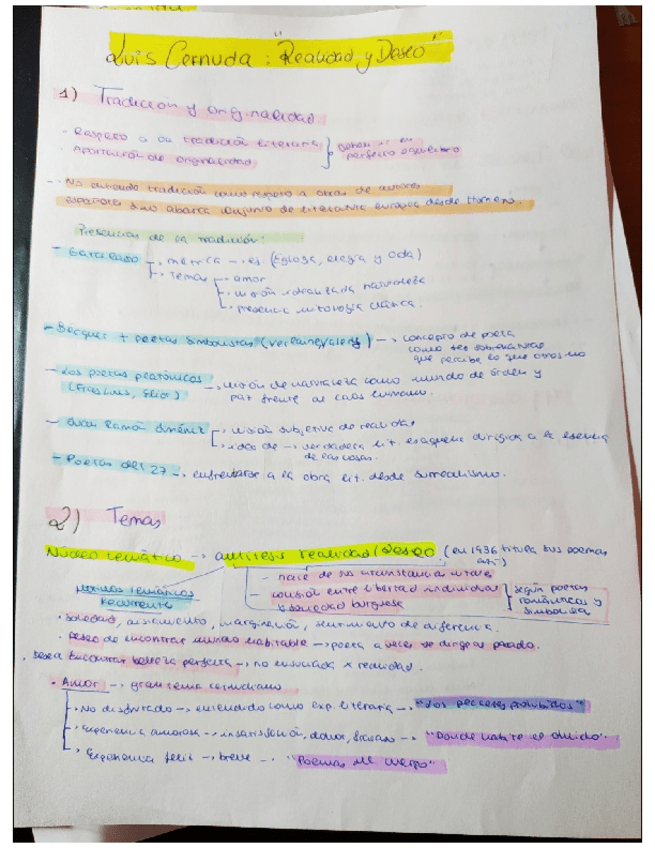 Luis Cernuda: "Realidad y Deseo"
1) Tradición y originalidad
· Respeto a la tradición literaria
· Aportación de originalidad
perfecto equilibrio
- No entiende tradición como respeto a obras de autores
españoles sino abarca conjunto de literatura europea desde Homero.
Presencias de la tradición:
- Garcilaso → métrica → es (Égloga, elegía y oda)
→ temas → amor
→ visión idealizada naturaleza
→ presencia mitología clásica.
- Becquer + poetas simbolistas (Verlaine, → concepto de poeta
como ser sobrenatural
que percibe lo que otros no
- Los poetas
→ visión de naturaleza como mundo de orden y
paz frente al caos humano.
- Juan Ramón Jiménez → visión subjetiva de realidad
→ idea de → verdadera lit. es aquella dirigida a la esencia
de las cosas.
- Poetas del 27 → enfrentarse a la obra lit. desde surrealismo.
2) Temas
Núcleo temático → antítesis realidad/deseo. (en 1936 titula sus poemas
así)
- nace de su circunstancia vital
- colisión entre libertad individual
y sociedad burguesa
según poetas
románticos y
simbolistas
temáticos
recurrente
· Soledad, aislamiento, marginación, sentimiento de diferencia.
· Deseo de encontrar mundo habitable → poeta a veces se dirige al pasado.
· Desea encontrar belleza perfecta → no ensuciada x realidad.
· Amor → gran tema cernudiano
→ No disfrutado → entendido como exp. literaria → "Los placeres prohibidos"
→ Experiencia amorosa → insatisfacción, dolor, fracaso → "Donde habite el olvido".
→ Experiencia feliz → breve → "Poemas para un cuerpo"